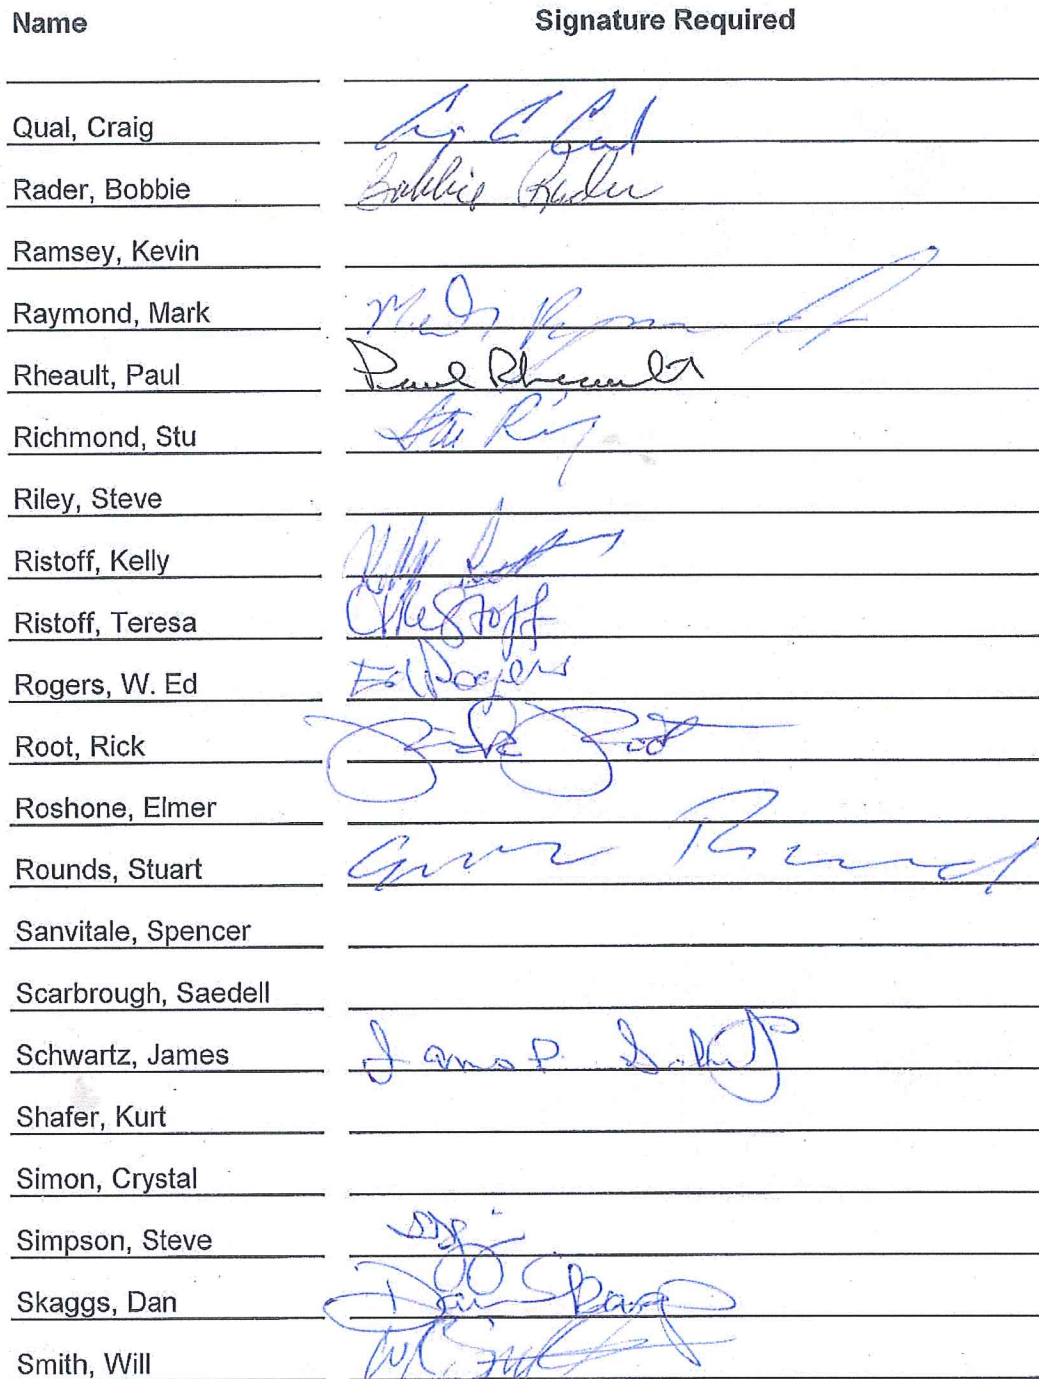 Name Signature Required
Qual, Craig
Rader, Bobbie Bobbie Rader
Ramsey, Kevin
Raymond, Mark
Rheault, Paul Paul Rheault
Richmond, Stu Stu
Riley, Steve
Ristoff, Kelly
Ristoff, Teresa
Rogers, W. Ed Ed Rogers
Root, Rick Rick Root
Roshone, Elmer
Rounds, Stuart
Sanvitale, Spencer
Scarbrough, Saedell
Schwartz, James James P.
Shafer, Kurt
Simon, Crystal
Simpson, Steve
Skaggs, Dan Dan Skaggs
Smith, Will